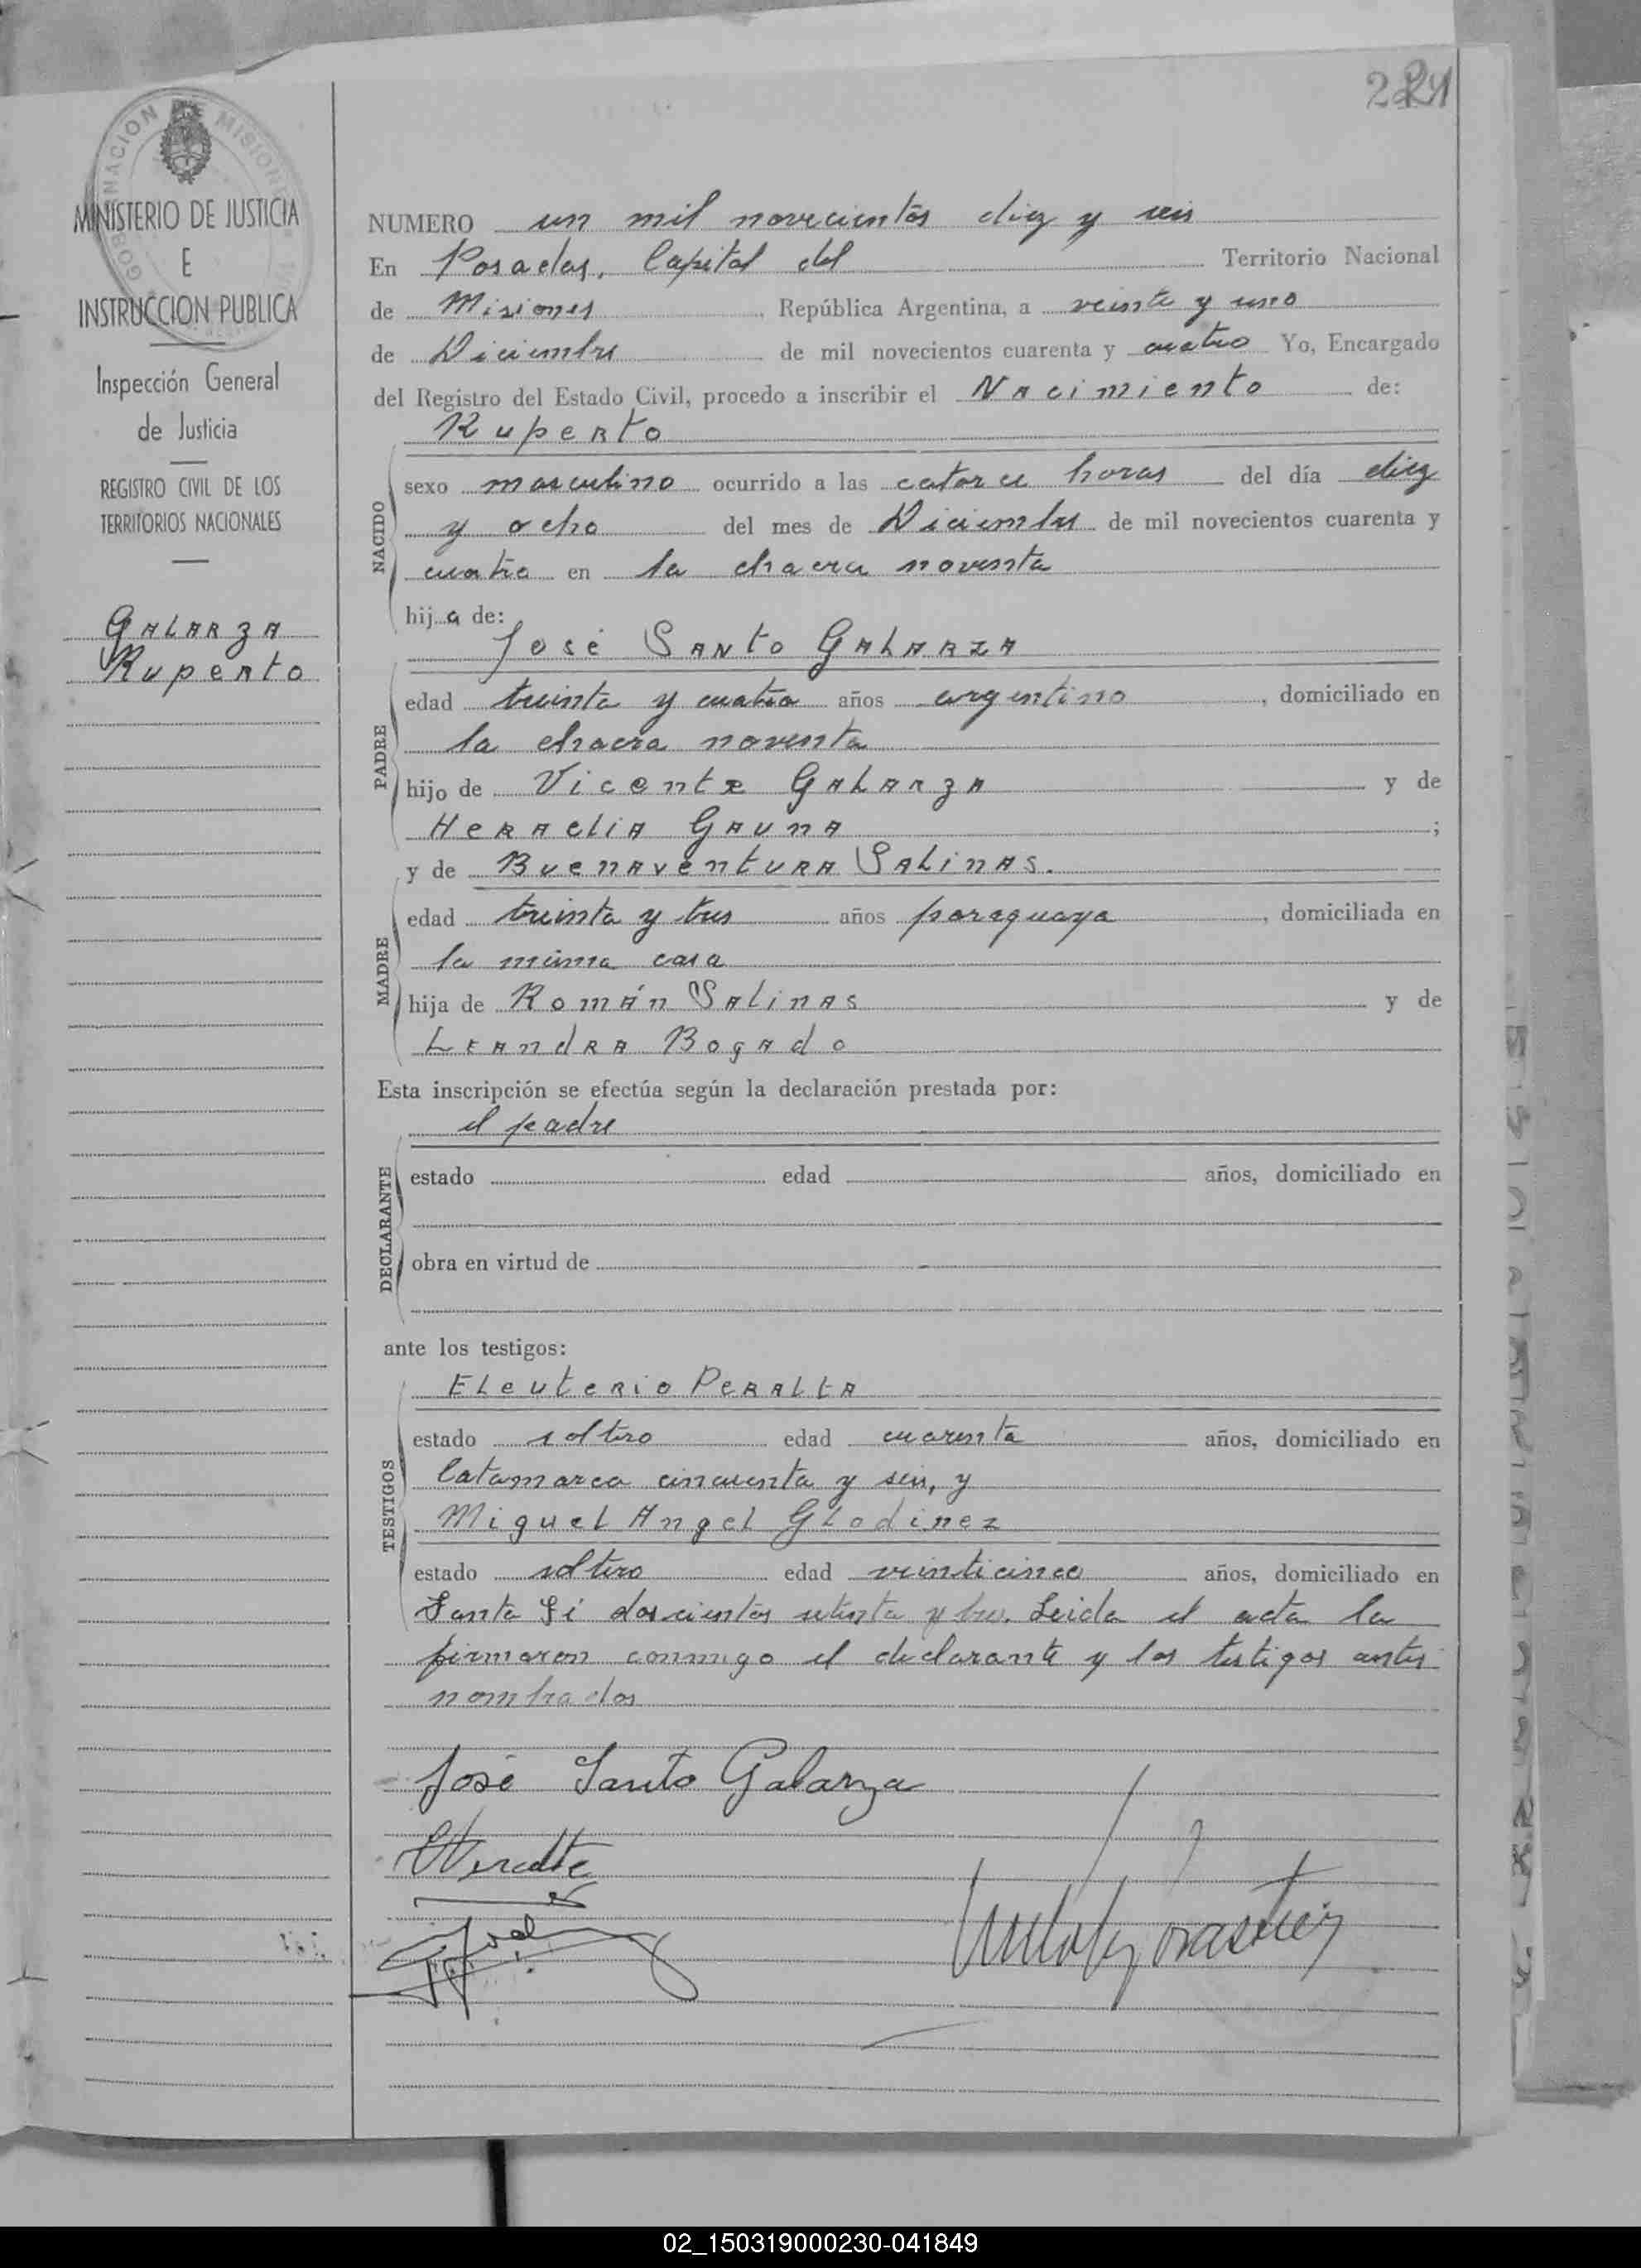 GOBERNACION DE MISIONES
MINISTERIO DE JUSTICIA
E
INSTRUCCION PUBLICA
Inspección General
de Justicia
REGISTRO CIVIL DE LOS
TERRITORIOS NACIONALES
GALARZA
Ruperto
NUMERO un mil novecientos diez y seis
En Posadas, Capital del Territorio Nacional
de Misiones, República Argentina, a veinte y uno
de Diciembre de mil novecientos cuarenta y cuatro Yo, Encargado
del Registro del Estado Civil, procedo a inscribir el Nacimiento de:
Ruperto
NACIDO
sexo masculino ocurrido a las catorce horas del día diez
y ocho del mes de Diciembre de mil novecientos cuarenta y
cuatro en la chacra noventa
hij o de:
José Santo GALARZA
PADRE
edad treinta y cuatro años argentino, domiciliado en
la chacra noventa
hijo de Vicente GALARZA y de
HERACLIA GAUNA;
y de BUENAVENTURA SALINAS.
MADRE
edad treinta y tres años paraguaya, domiciliada en
la misma casa
hija de Román SALINAS y de
LEANDRA Bogado
Esta inscripción se efectúa según la declaración prestada por:
el padre
DECLARANTE
estado edad años, domiciliado en
obra en virtud de
ante los testigos:
ELEUTERIO PERALTA
TESTIGOS
estado soltero edad cuarenta años, domiciliado en
Catamarca cincuenta y seis, y
Miguel Angel Glodinez
estado soltero edad veinticinco años, domiciliado en
Santa Fé doscientos setenta y tres. Leida el acta la
firmaron conmigo el declarante y los testigos antes
nombrados
José Santo Galarza
02_150319000230-041849